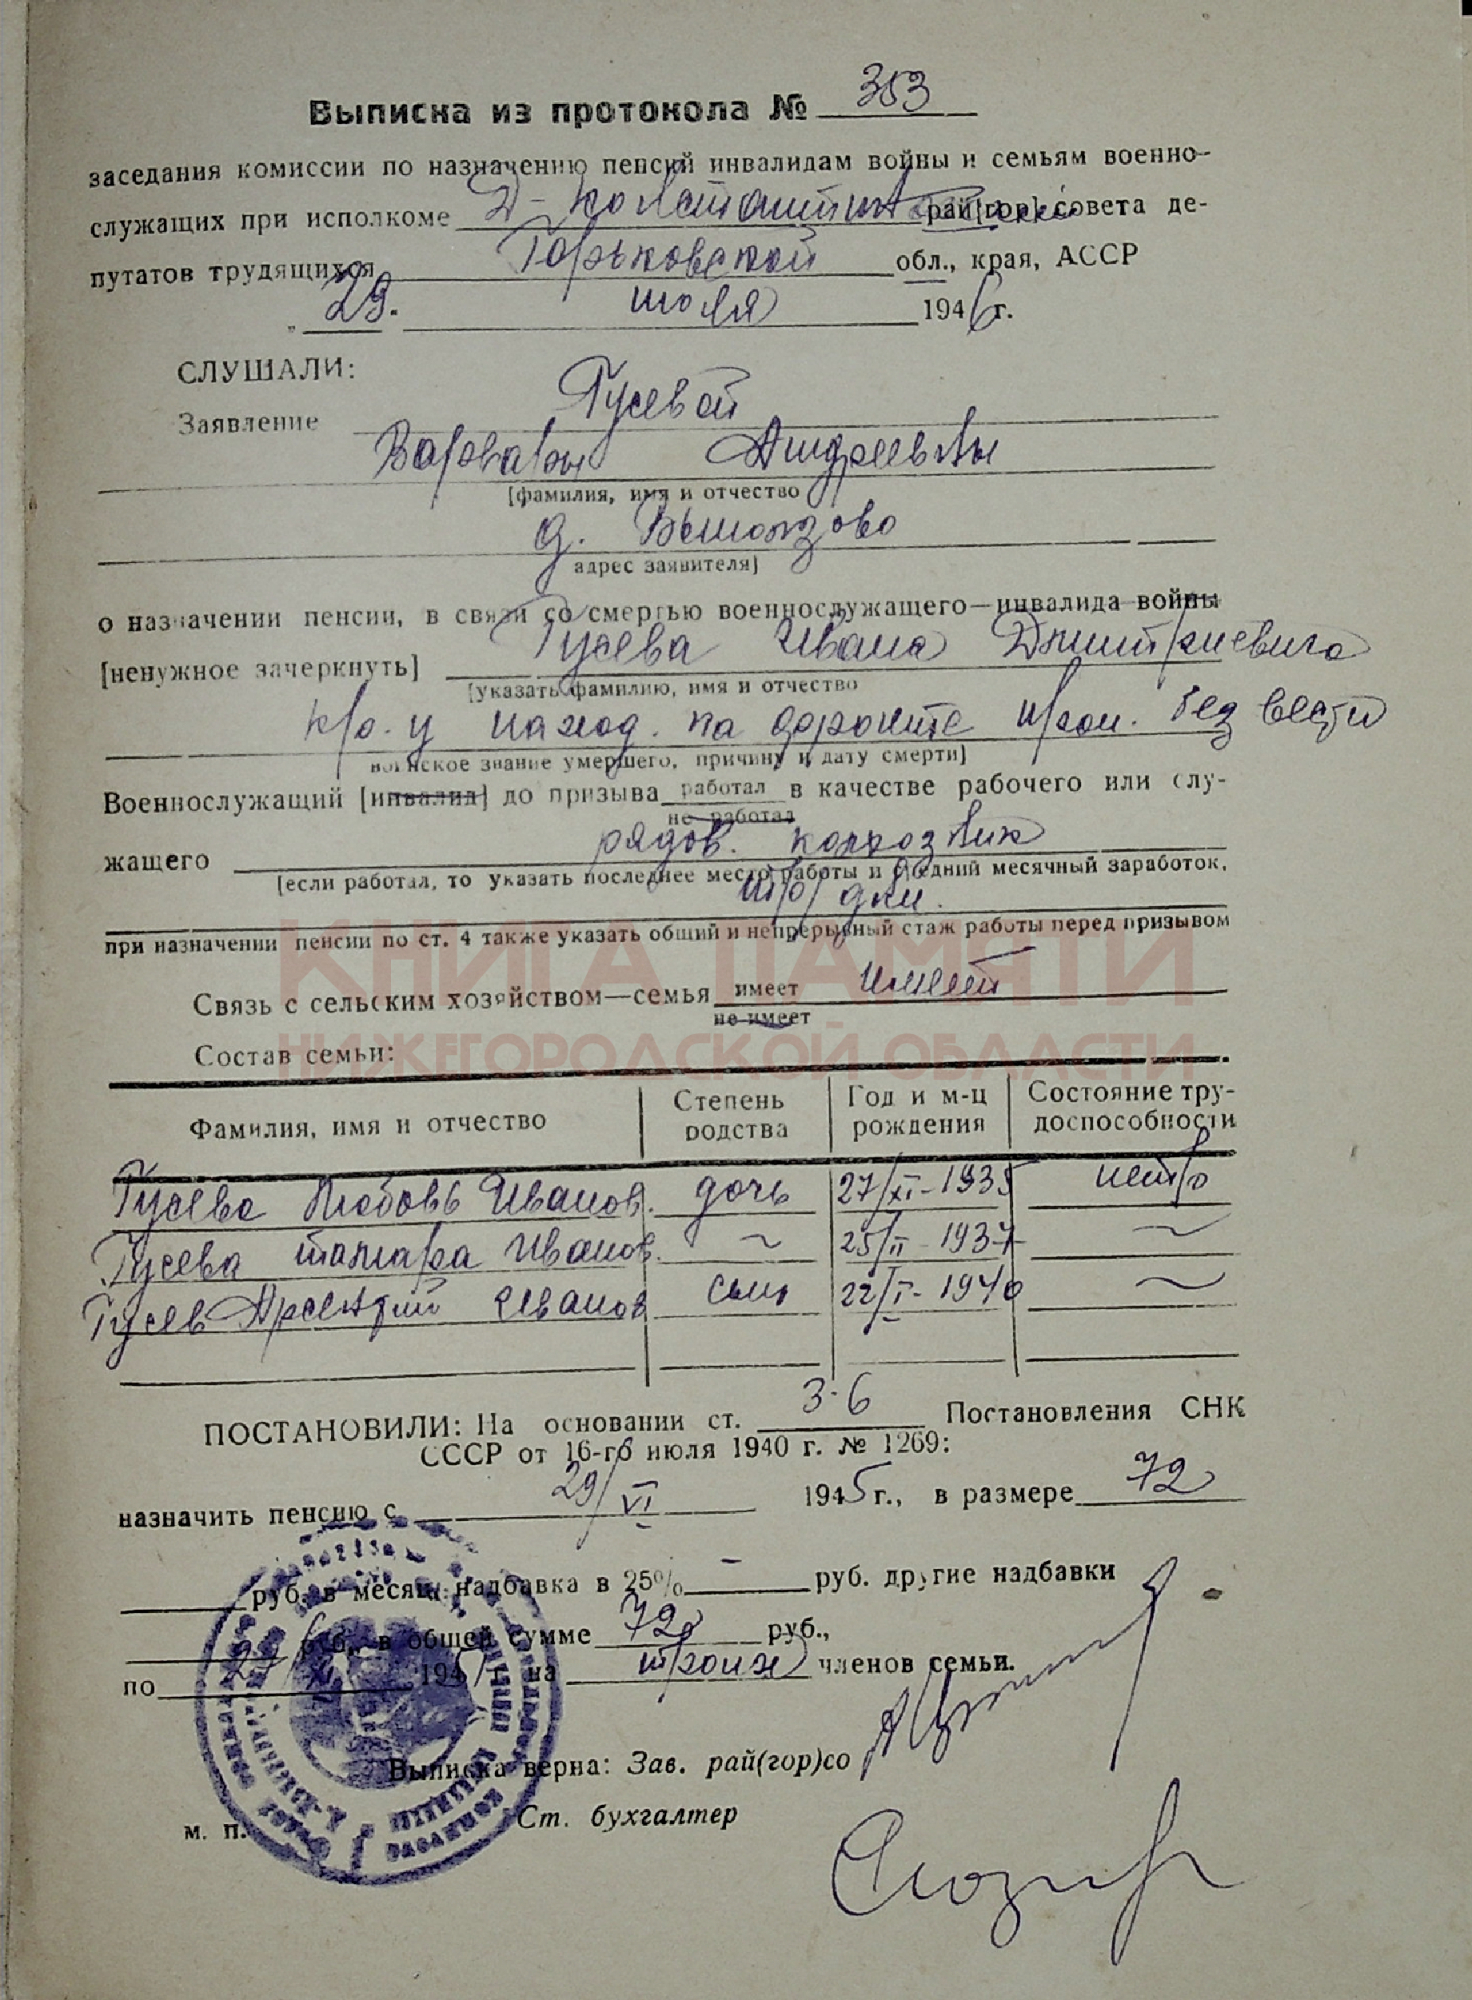 Выписка из протокола № 353
заседания комиссии по назначению пенсий инвалидам войны и семьям военно-
служащих при исполкоме Д-Константиновском рай[гор] совета де-
путатов трудящихся Горьковской обл., края, АССР
„ 29. июля 1946 г.
СЛУШАЛИ:
Заявление Гусевой
Варвары Андреевны
[фамилия, имя и отчество
д.
адрес заявителя]
о назначении пенсии, в связи со смертью военнослужащего—инвалида войны
[ненужное зачеркнуть] Гусева Ивана Дмитриевича
[указать фамилию, имя и отчество
кр-ц наход. на фронте проп. без вести
воинское звание умершего, причину и дату смерти]
Военнослужащий [инвалид] до призыва работал в качестве рабочего или слу-
не работал
жащего рядов. колхозник
[если работал, то указать последнее место работы и средний месячный заработок,
тр/дни.
при назначении пенсии по ст. 4 также указать общий и непрерывный стаж работы перед призывом
КНИГА ПАМЯТИ
Связь с сельским хозяйством—семья имеет имеет
не имеет
НИЖЕГОРОДСКОЙ ОБЛАСТИ
Состав семьи:
Фамилия, имя и отчество Степень родства Год и м-ц рождения Состояние тру-доспособности
Гусева Любовь Иванов. дочь 27/XI-1935 нетр
Гусева Тамара Иванов. ~ 25/II-1937 ~
Гусев Арсентий Иванов сын 22/I-1940 ~
ПОСТАНОВИЛИ: На основании ст. 3-6 Постановления СНК
СССР от 16-го июля 1940 г. № 1269:
назначить пенсию с 29/VI 1945 г., в размере 72
руб. в месяц надбавка в 25% — руб. другие надбавки —
руб., в общей сумме 72 руб.,
по 27/XI 195 г. на троих членов семьи.
Выписка верна: Зав. рай(гор)со
м. п. Ст. бухгалтер